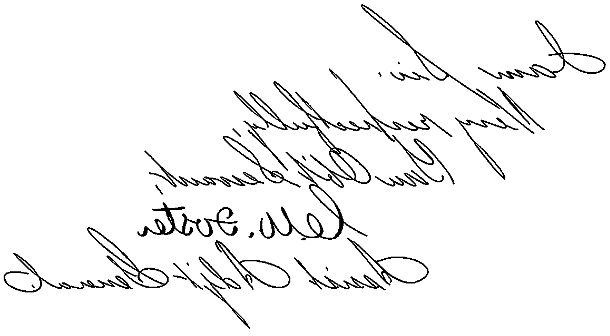 I am, Sir,
Very respectfully,
Your Ob't Servant,
C. W. Foster
Assist Adjt General.